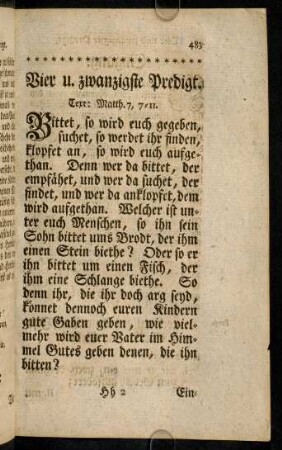 483
Vier u. zwanzigste Predigt.
Text: Matth. 7, 7-11.
Bittet, so wird euch gegeben,
suchet, so werdet ihr finden,
klopfet an, so wird euch aufge-
than. Denn wer da bittet, der
empfähet, und wer da suchet, der
findet, und wer da anklopfet, dem
wird aufgethan. Welcher ist un-
ter euch Menschen, so ihn sein
Sohn bittet ums Brodt, der ihm
einen Stein biethe? Oder so er
ihn bittet um einen Fisch, der
ihm eine Schlange biethe. So
denn ihr, die ihr doch arg seyd,
könnet dennoch euren Kindern
gute Gaben geben, wie viel-
mehr wird euer Vater im Him-
mel Gutes geben denen, die ihn
bitten?
Hh 2 Ein-